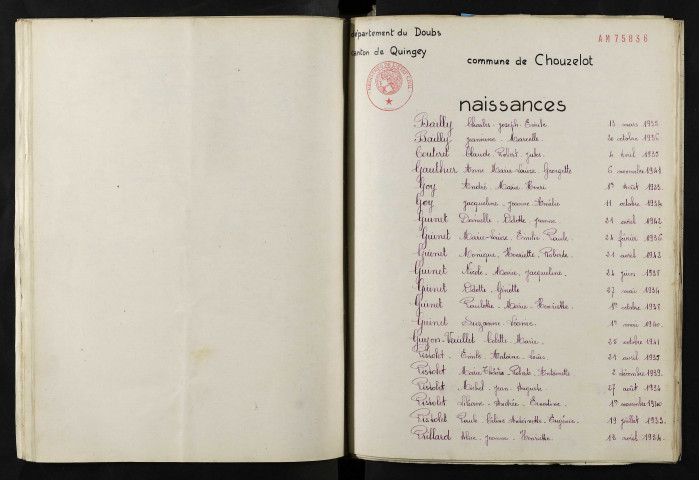 département du Doubs
canton de Quingey
AM 75836
commune de Chouzelot
naissances
Bailly Charles-Joseph-Emile 13 mars 1938
Bailly Jeannine-Marcelle 20 octobre 1936
Coutert Claude-Robert-Jules 4 avril 1935
Gauthier Anne-Marie-Louise-Georgette 6 novembre 1941
Goy André-Marie-Henri 1er août 1933
Goy Jacqueline-Jeanne-Amélie 11 octobre 1934
Guinet Danielle-Odette-Jeanne 21 avril 1942
Guinet Marie-Louise-Emilie-Paule 24 février 1936
Guinet Monique-Henriette-Roberte 21 avril 1942
Guinet Nicole-Marie-Jacqueline 24 juin 1938
Guinet Odette-Ginette 27 mai 1934
Guinet Paulette-Marie-Henriette 1er octobre 1938
Guinet Suzanne 1er mai 1940
Guyon-Vuillet Colette-Marie 25 octobre 1941
Pistolet Emile-Antoine-Louis 21 avril 1935
Pistolet Marie-Thérèse-Antoinette 2 décembre 1939
Pistolet Michel-Jean-Auguste 27 août 1934
Pistolet Liliane-Andrée-Ernestine 1er novembre 1940
Pistolet Paule-Céline-Antoinette-Eugénie 19 juillet 1933
Prillard Aline-Jeanne-Henriette 13 avril 1934